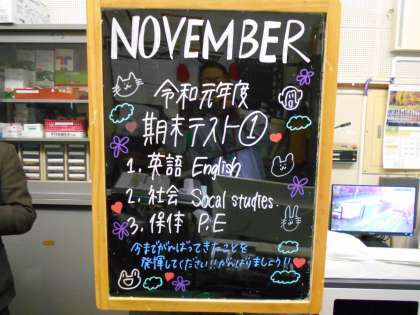 NOVEMBER
令和元年度
期末テスト①
1. 英語 English
2. 社会 Socal studies.
3. 保体 P.E
今までがんばってきたことを
発揮してください!!がんばりましょう!!